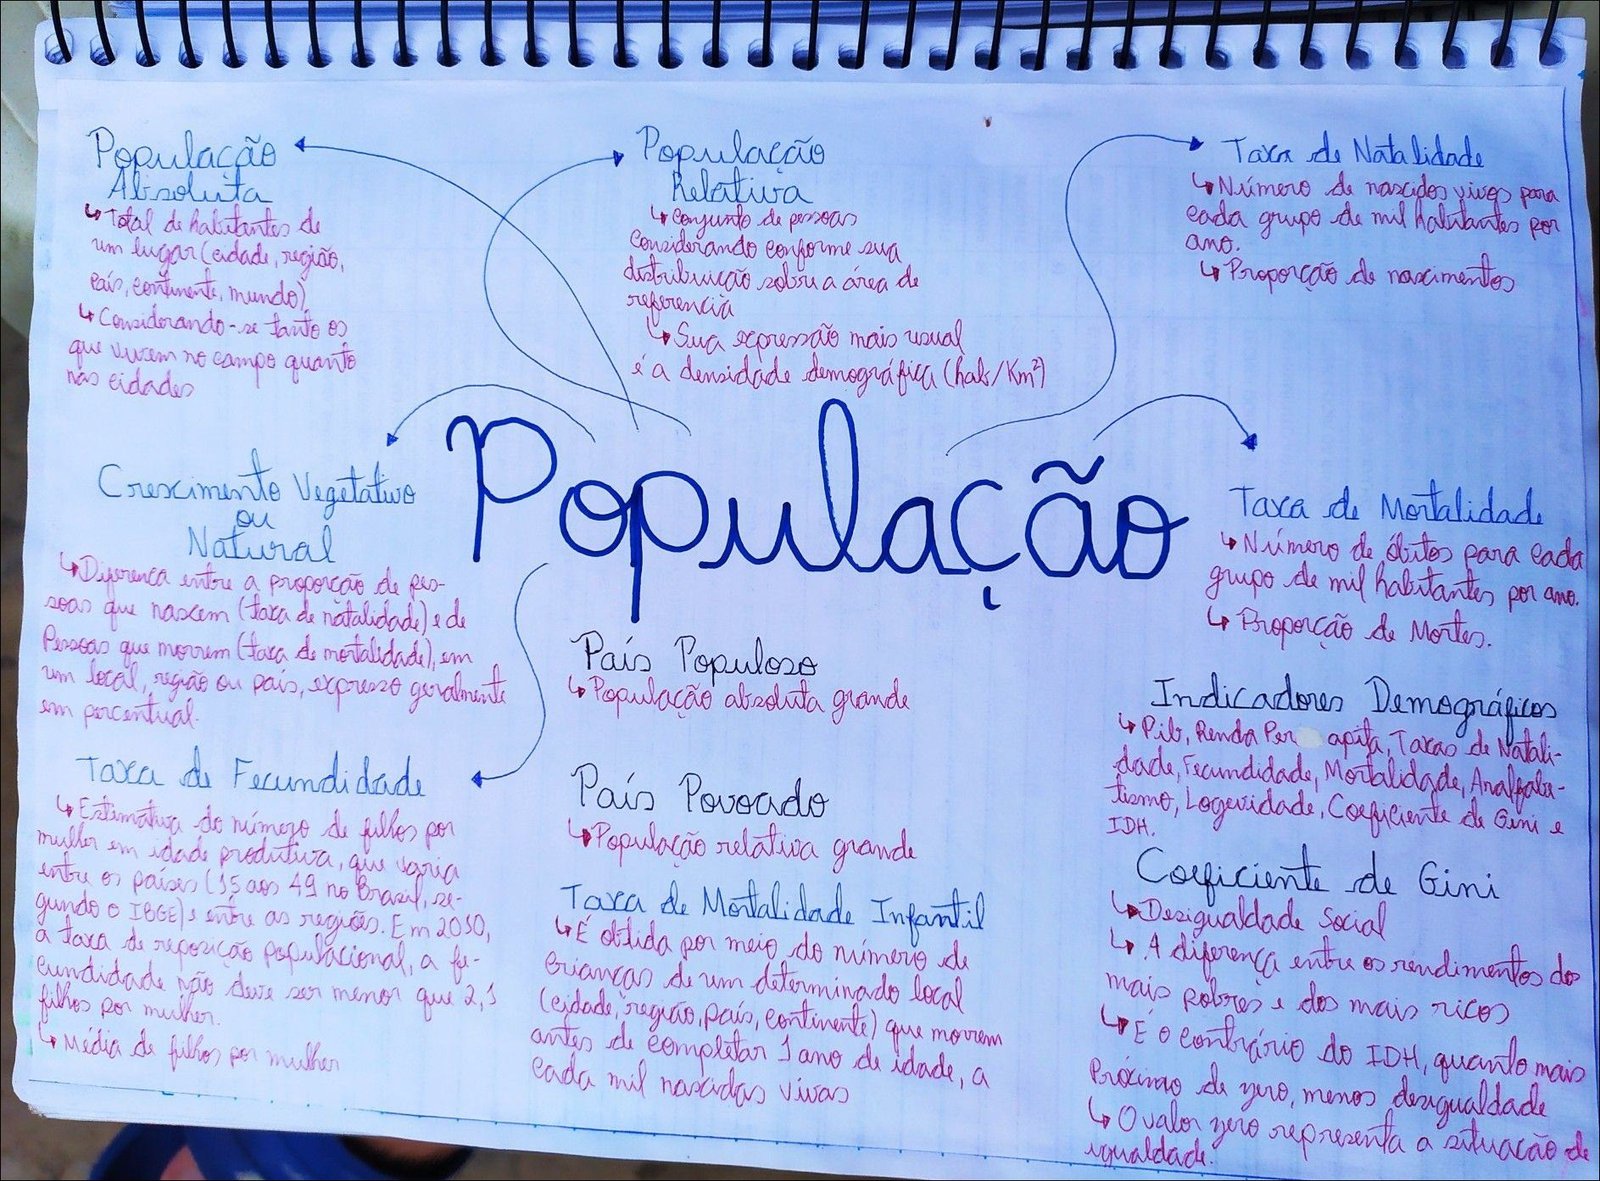 População
Absoluta
↳ Total de habitantes de
um lugar (cidade, região,
país, continente, mundo)
↳ Considerando-se tanto os
que vivem no campo quanto
nas cidades
População
Relativa
↳ Conjunto de pessoas
considerando conforme sua
distribuição sobre a área de
referencia
↳ Sua expressão mais usual
é a densidade demográfica (hab/Km²)
Taxa de Natalidade
↳ Número de nascidos vivos para
cada grupo de mil habitantes por
ano.
↳ Proporção de nascimentos
População
Crescimento Vegetativo
ou
Natural
↳ Diferença entre a proporção de pes-
soas que nascem (taxa de natalidade) e de
Pessoas que morrem (taxa de mortalidade), em
um local, região ou país, expresso geralmente
em percentual.
Taxa de Mortalidade
↳ Número de óbitos para cada
grupo de mil habitantes por ano.
↳ Proporção de Mortes.
Taxa de Fecundidade
↳ Estimativa do número de filhos por
mulher em idade produtiva, que varia
entre os países (15 aos 49 no Brasil, se-
gundo o IBGE) e entre as regiões. Em 2050,
a taxa de reposição populacional, a fe-
cundidade não deve ser menor que 2,1
filhos por mulher.
↳ Média de filhos por mulher
País Populoso
↳ População absoluta grande
País Povoado
↳ População relativa grande
Taxa de Mortalidade Infantil
↳ É obtida por meio do número de
crianças de um determinado local
(cidade, região, país, continente) que morrem
antes de completar 1 ano de idade, a
cada mil nascidas vivas
Indicadores Demográficos
↳ Pib, Renda Per apita, Taxas de Natali-
dade, Fecundidade, Mortalidade, Analfabe-
tismo, Logevidade, Coeficiente de Gini e
IDH.
Coeficiente de Gini
↳ Desigualdade Social
↳ A diferença entre os rendimentos dos
mais pobres e dos mais ricos
↳ É o contrário do IDH, quanto mais
Próximo de zero, menos desigualdade
↳ O valor zero representa a situação de
igualdade.